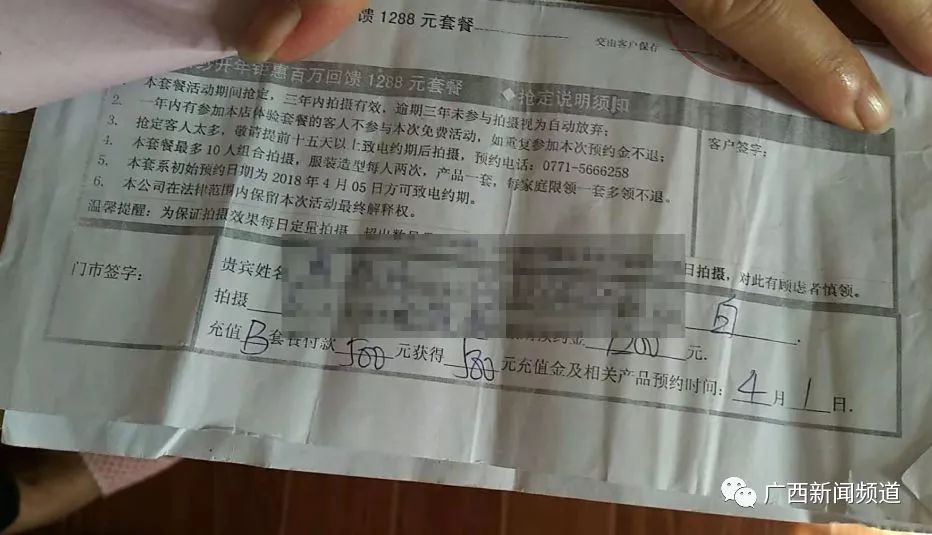 馈 1288 元套餐
交由客户保存
开年钜惠百万回馈 1288 元套餐 ◆抢定说明须知
1. 本套餐活动期间抢定，三年内拍摄有效，逾期三年未参与拍摄视为自动放弃；
2. 一年内有参加本店体验套餐的客人不参与本次免费活动，如重复参加本次预约金不退；
3. 抢定客人太多，敬请提前十五天以上致电约期后拍摄，预约电话：0771-5666258
4. 本套餐最多 10 人组合拍摄，服装造型每人两次，产品一套，每家庭限领一套多领不退。
5. 本套系初始预约日期为 2018 年 4 月 05 日方可致电约期。
6. 本公司在法律范围内保留本次活动最终解释权。
温馨提醒：为保证拍摄效果每日定量拍摄，超出数
日拍摄，对此有顾虑者慎领。
客户签字：
门市签字：
贵宾姓名
拍摄
预约金 1200 元.
充值 B 套餐付款 500 元获得 500 元充值金及相关产品预约时间： 4 月 1 日.
广西新闻频道